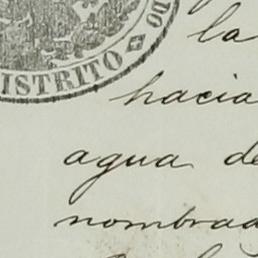 DO
ISTRITO
la
hacia
agua de
nombrad